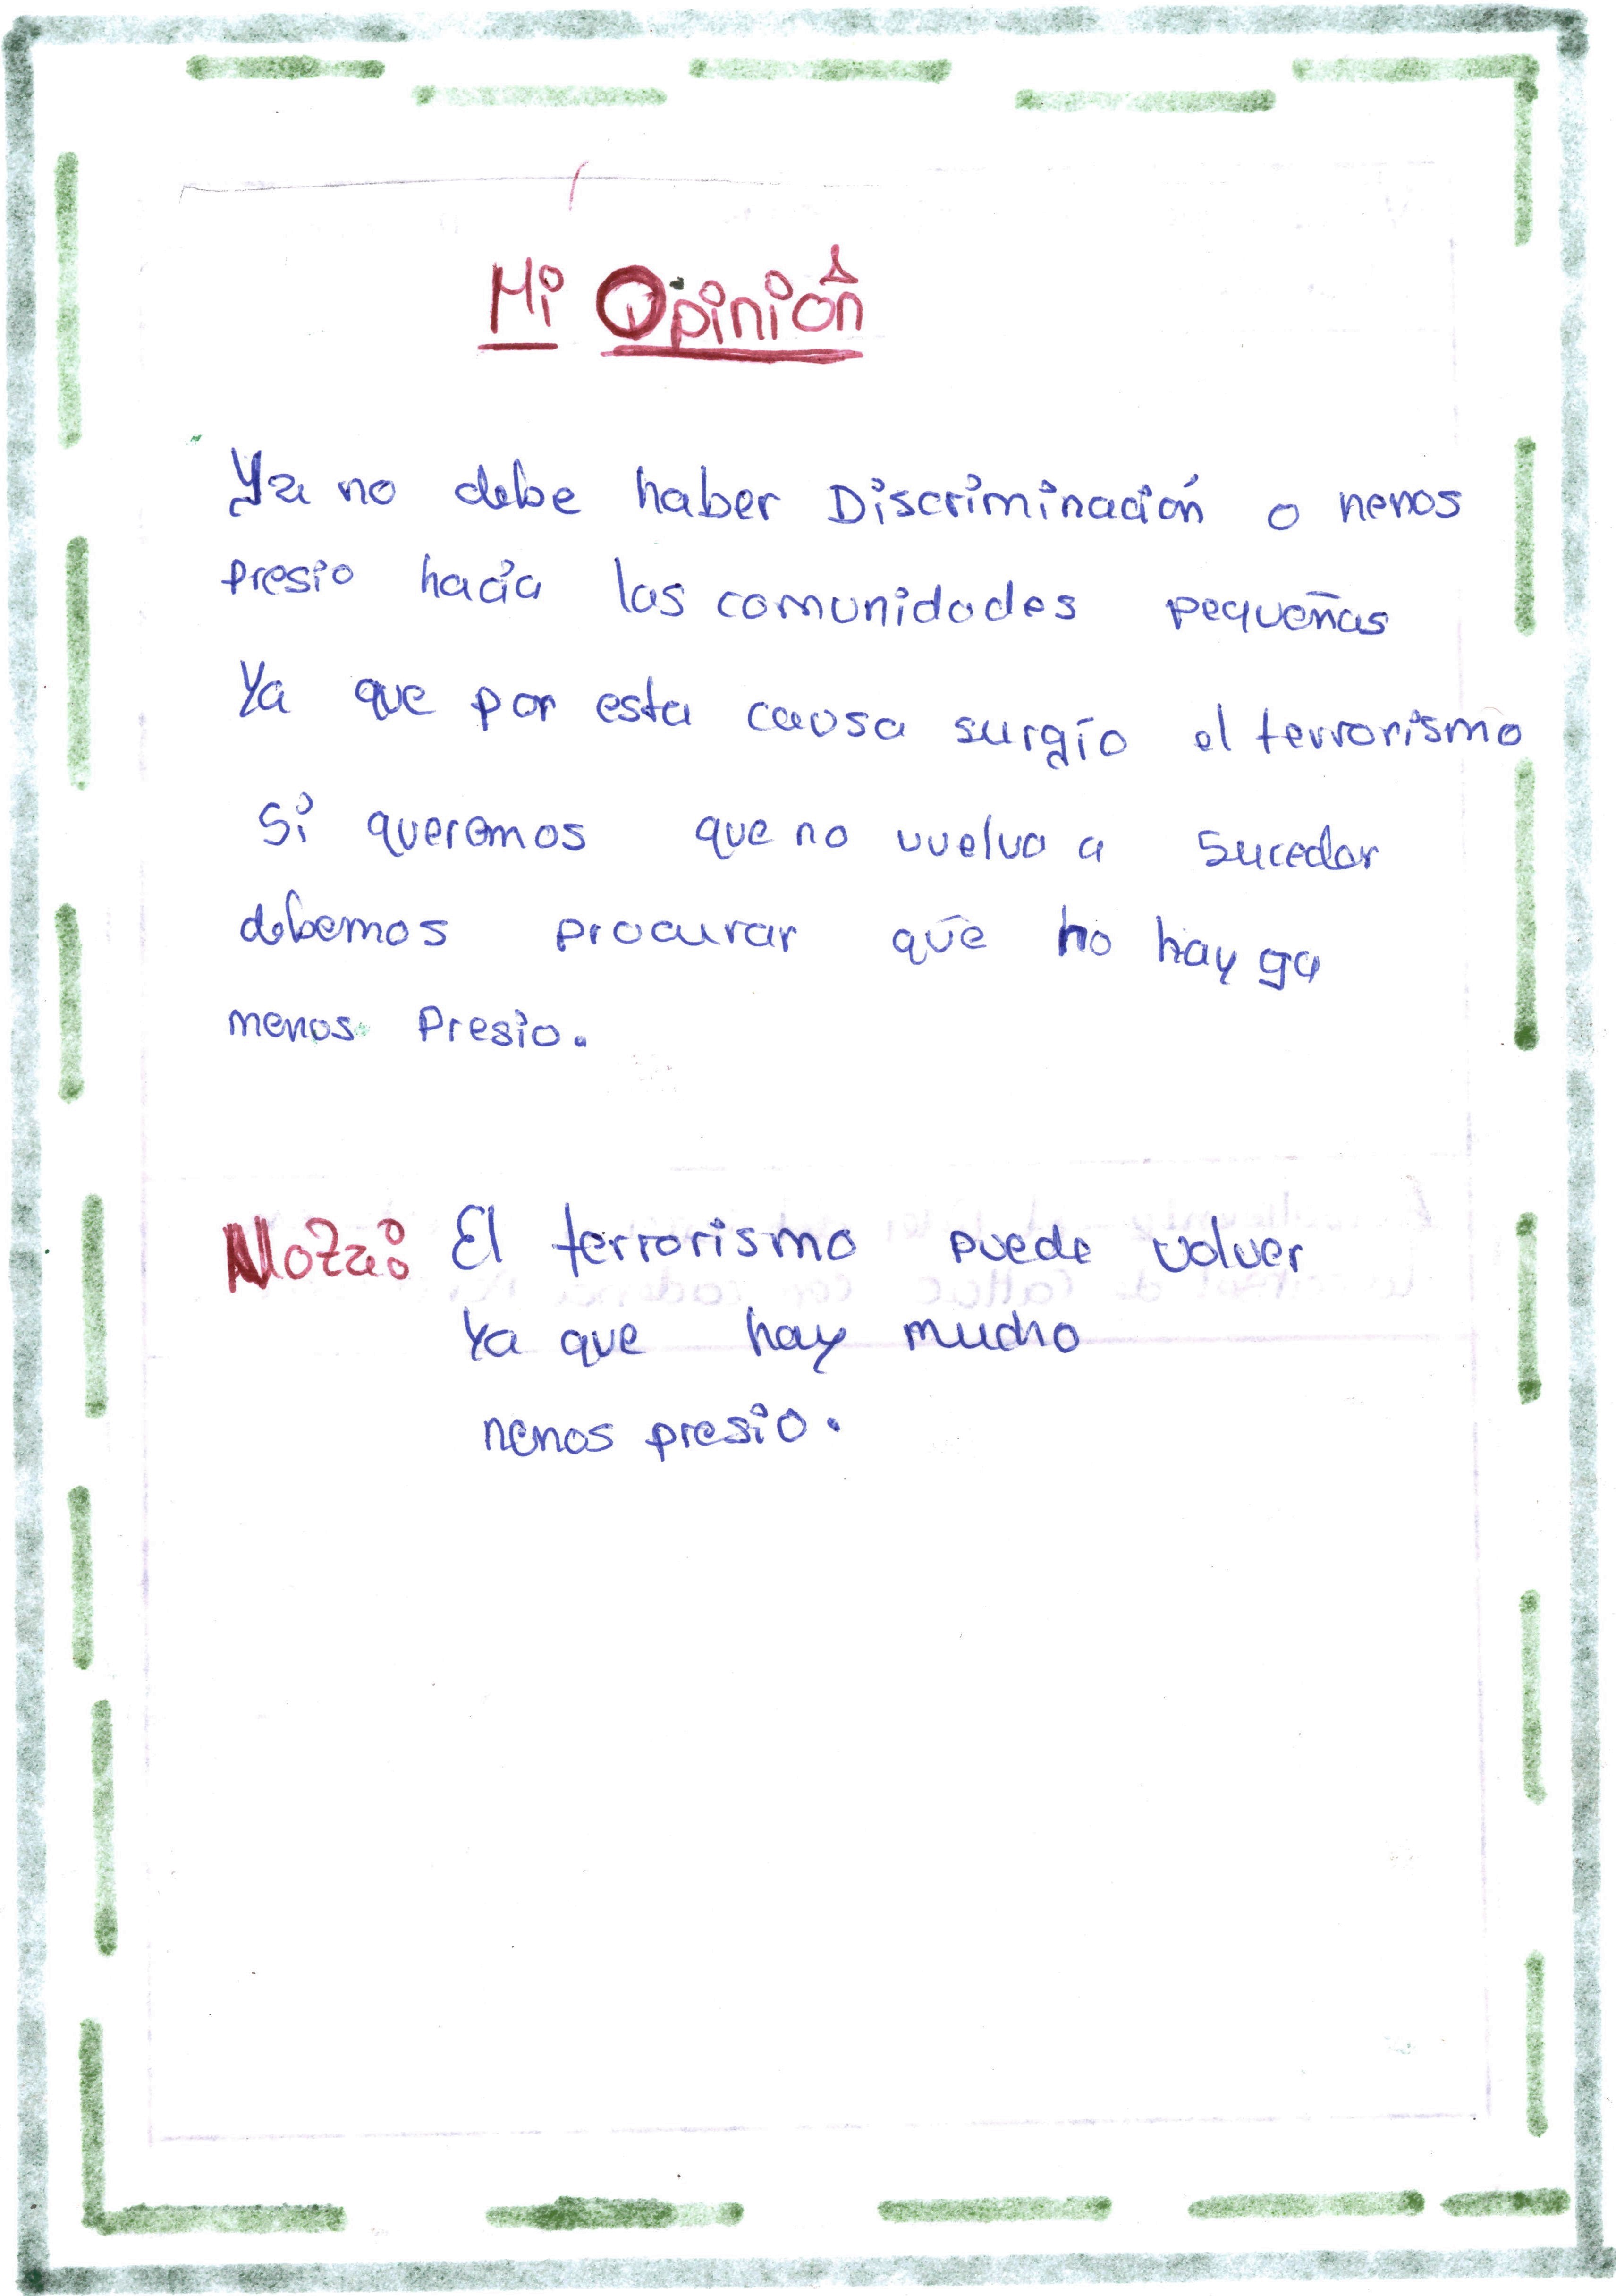 Mi Opinión
Ya no debe haber Discriminación o nenos
presio hacia las comunidades pequeñas
Ya que por esta causa surgío el terrorismo
Si queremos que no vuelva a suceder
debemos procurar que no hayga
menos Presio.
Nota: El terrorismo puede volver
Ya que hay mucho
nenos presio.